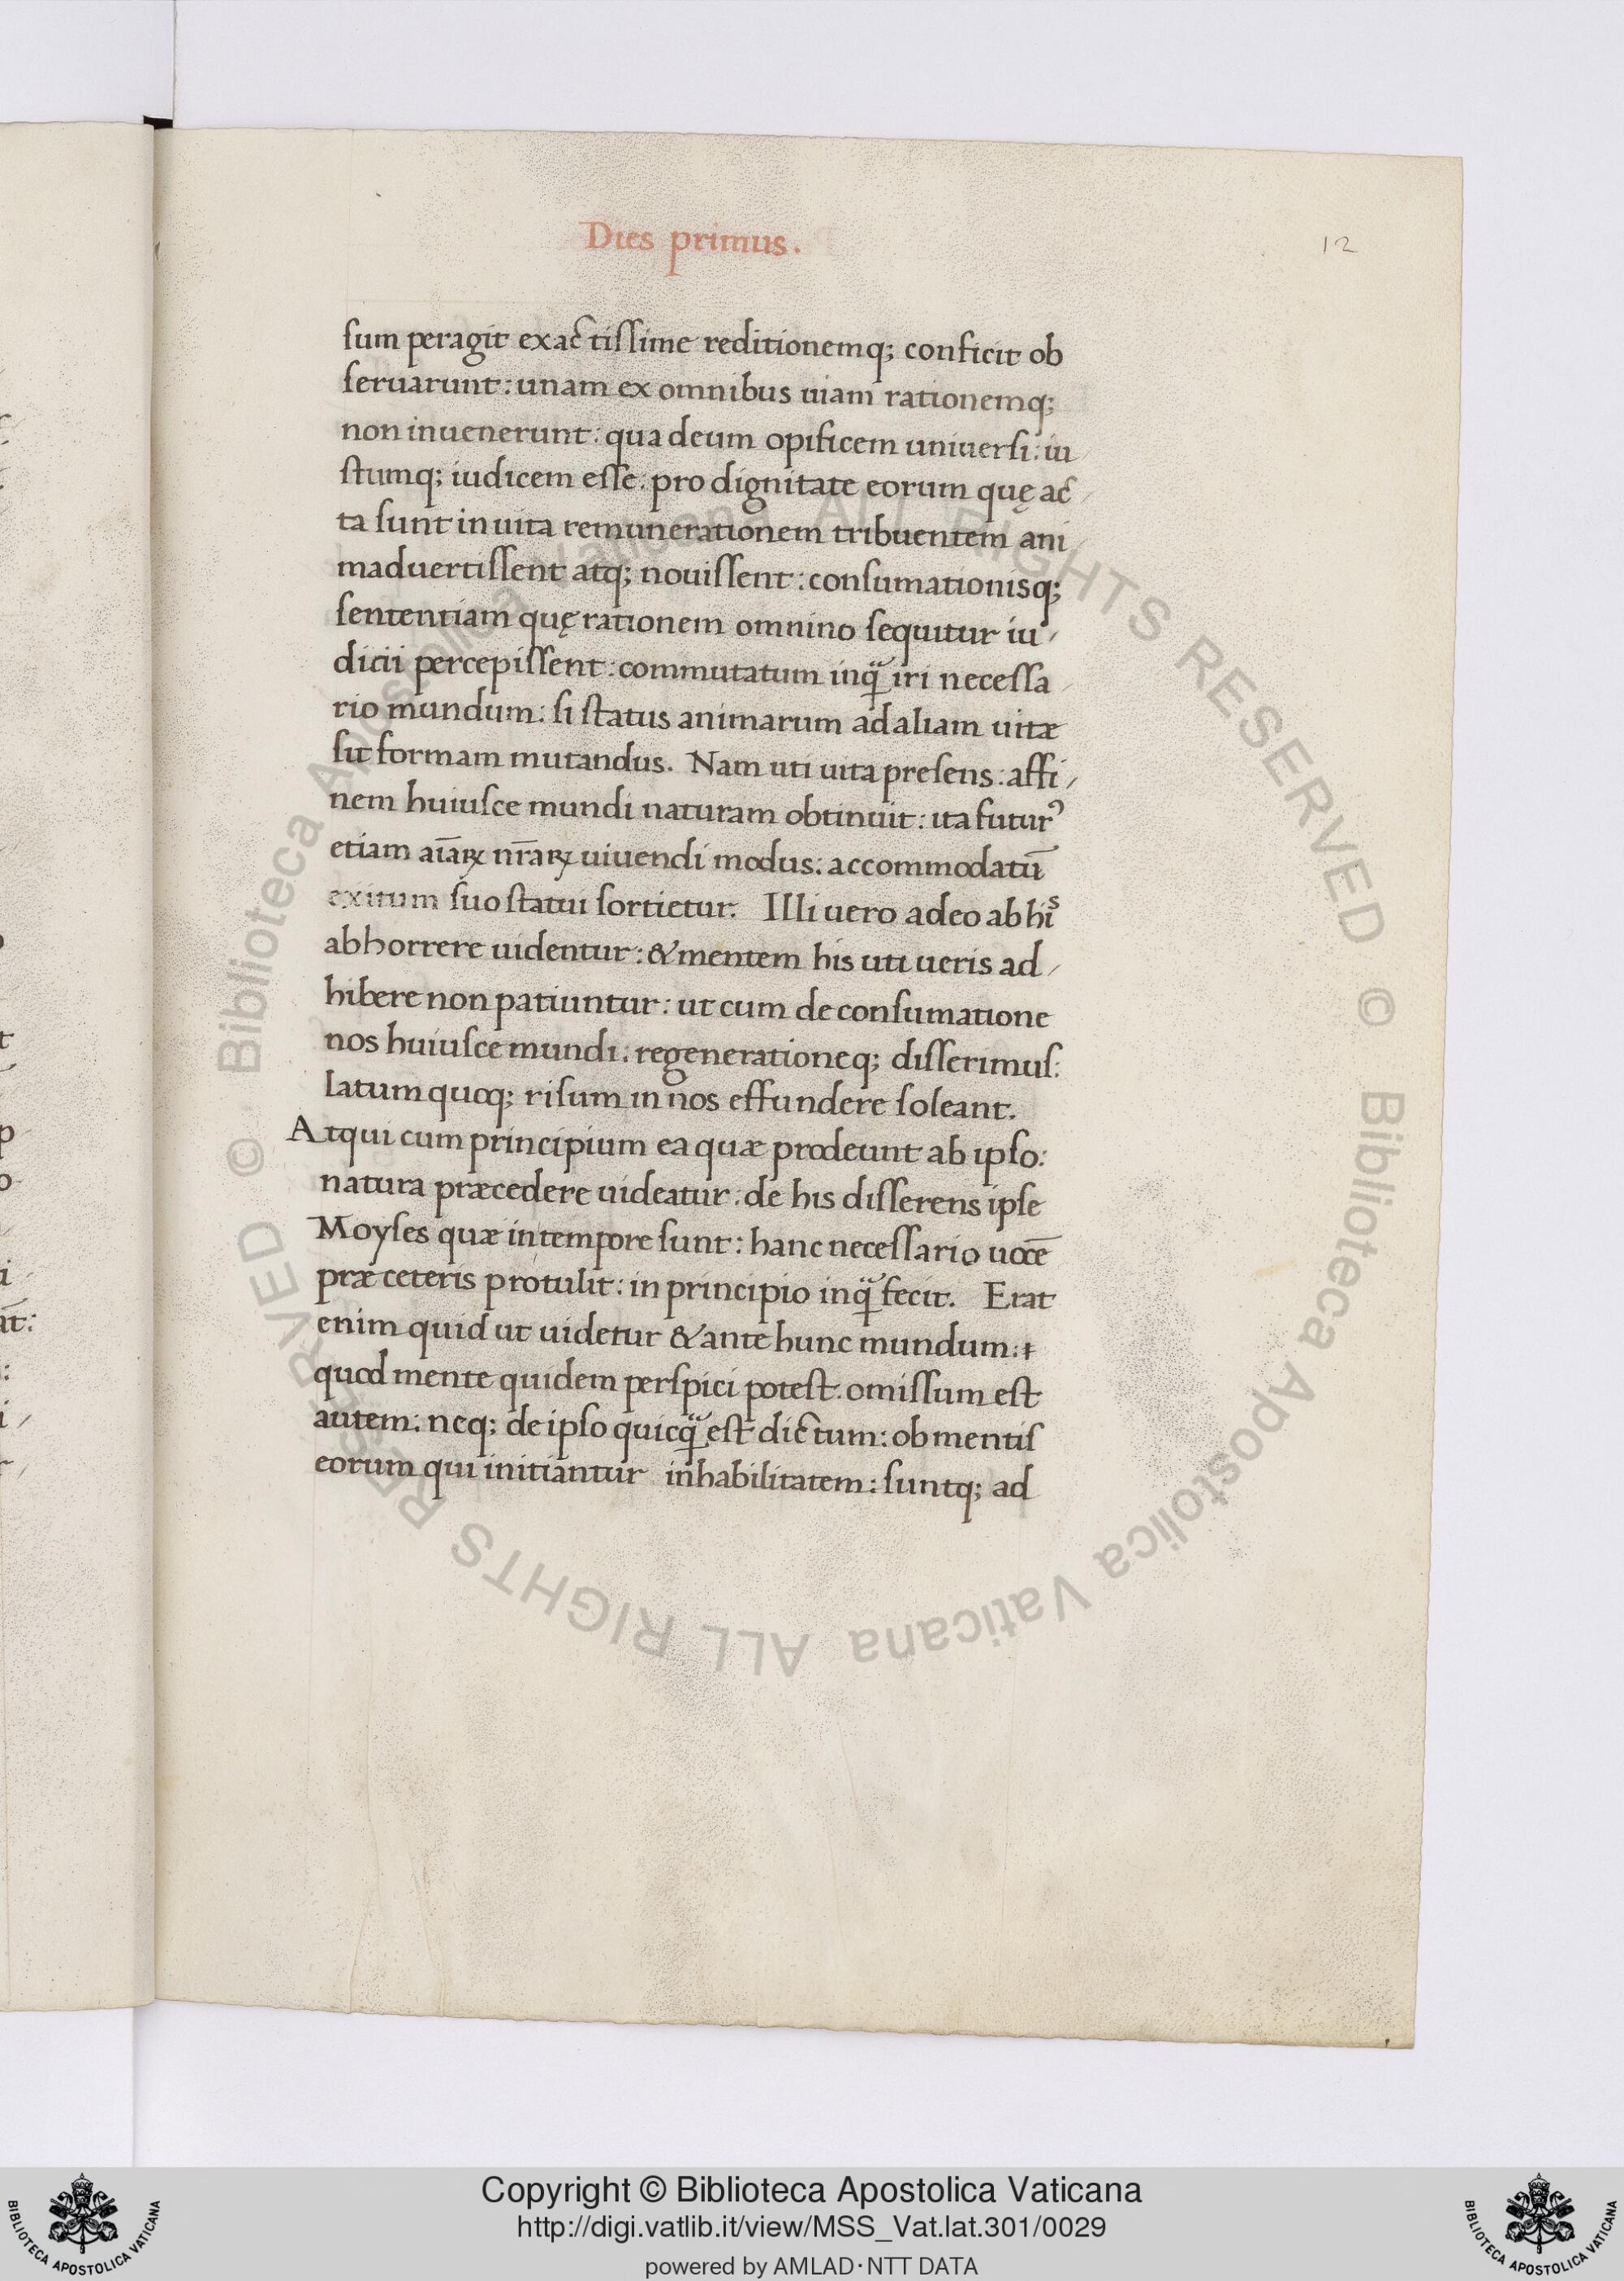 Dies primus.
12
sum peragit exactissime reditionemq; conficit ob
seruarunt: unam ex omnibus uiam rationemq;
non inuenerunt: qua deum opificem uniuersi: iu
stumq; iudicem esse: pro dignitate eorum quę ac
ta sunt in uita remunerationem tribuentem ani
maduertissent atq; nouissent: consumationisq;
sententiam quę rationem omnino sequitur iu
dicii percepissent: commutatum inq̃ iri necessa
rio mundum: si status animarum ad aliam uitæ
sit formam mutandus. Nam uti uita presens: affi
nem huiusce mundi naturam obtinuit: ita futurꝰ
etiam aīaꝝ nr̄aꝝ uiuendi modus: accommodatū
exitum suo statui sortietur. Illi uero adeo ab his
abhorrere uidentur: & mentem his uti ueris ad
hibere non patiuntur: ut cum de consumatione
nos huiusce mundi: regenerationeq; disserimus:
latum quoq; risum in nos effundere soleant.
Atqui cum principium ea quæ prodeunt ab ipso:
natura præcedere uideatur: de his disserens ipse
Moyses quæ in tempore sunt: hanc necessario uocē
præ ceteris protulit: in principio inq̃ fecit. Erat
enim quid ut uidetur & ante hunc mundum:
quod mente quidem perspici potest: omissum est
autem: neq; de ipso quicq̃ est dictum: ob mentis
eorum qui initiantur inhabilitatem: suntq; ad
Copyright © Biblioteca Apostolica Vaticana
http://digi.vatlib.it/view/MSS_Vat.lat.301/0029
powered by AMLAD·NTT DATA
© Biblioteca Apostolica Vaticana ALL RIGHTS RESERVED © Biblioteca Apostolica Vaticana ALL RIGHTS RESERVED
BIBLIOTECA APOSTOLICA VATICANA
BIBLIOTECA APOSTOLICA VATICANA